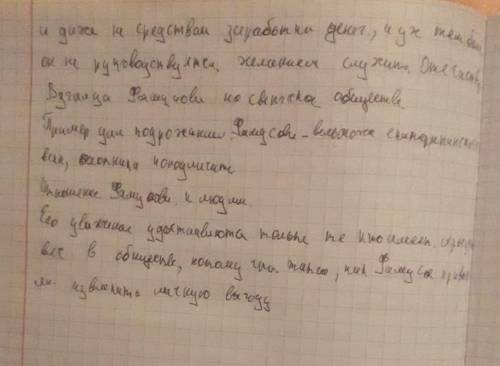 и даже не средством заработки денег, и уж тем бол
он не руководствуется желанием служить Отечеству
Взгляды Фамусова на светское общество
Пример для подрожания Фамусова – вельможа екатерининск
век, охотники поподличать
Отношение Фамусова к людям.
Его уважение удостаиваются только те кто имеет
вес в обществе, потому что такие, как Фамусов
ли извлекать личную выгоду